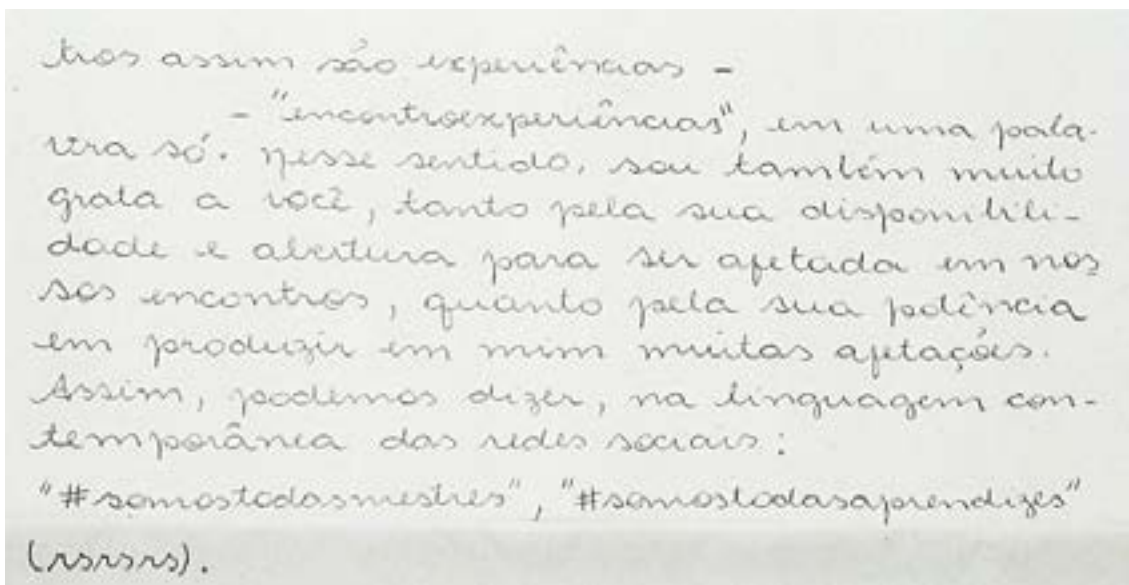 tros assim são experiências -
- "encontroexperiências", em uma pala-
vra só. Nesse sentido, sou também muito
grata a você, tanto pela sua disponibili-
dade e abertura para ser afetada em nos
sos encontros, quanto pela sua potência
em produzir em mim muitas afetações.
Assim, podemos dizer, na linguagem con-
temporânea das redes sociais:
"#somostodasmestres", "#somostodasaprendizes"
(rsrsrs).